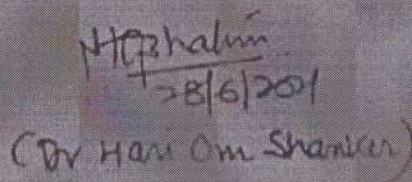 28/6/2001
(Dr Hari Om Shanker)